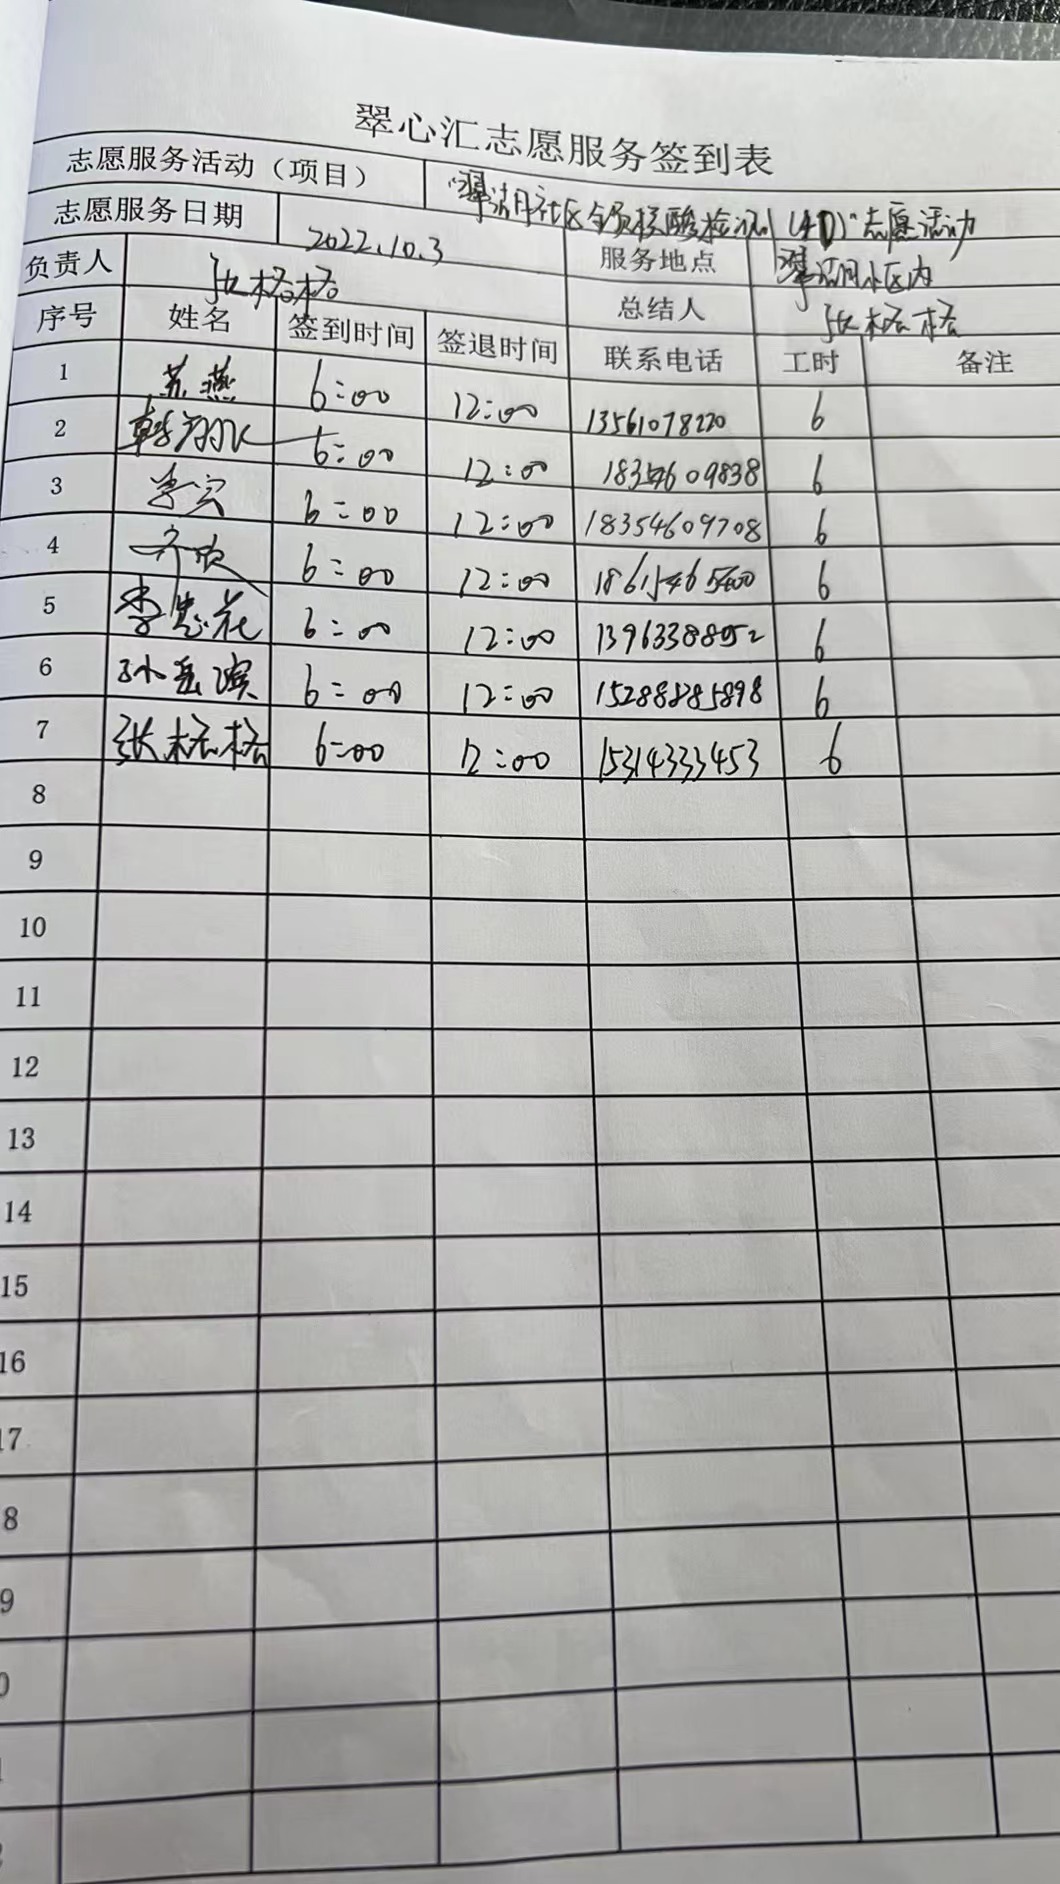 翠心汇志愿服务签到表
志愿服务活动（项目） 社区全员核酸检测（4D）"志愿活动
志愿服务日期 2022.10.3 服务地点 小区内
负责人 张格格 总结人 张格格
序号 姓名 签到时间 签退时间 联系电话 工时 备注
1 苏燕 6:00 12:00 13561078220 6
2 韩翔飞 6:00 12:00 18354609838 6
3 李宾 6:00 12:00 18354609708 6
4 齐欣 6:00 12:00 6
5 李忠花 6:00 12:00 13963388052 6
6 孙岳滨 6:00 12:00 15288285898 6
7 张格格 6:00 12:00 15314333453 6
8
9
10
11
12
13
14
15
16
17
8
9
0